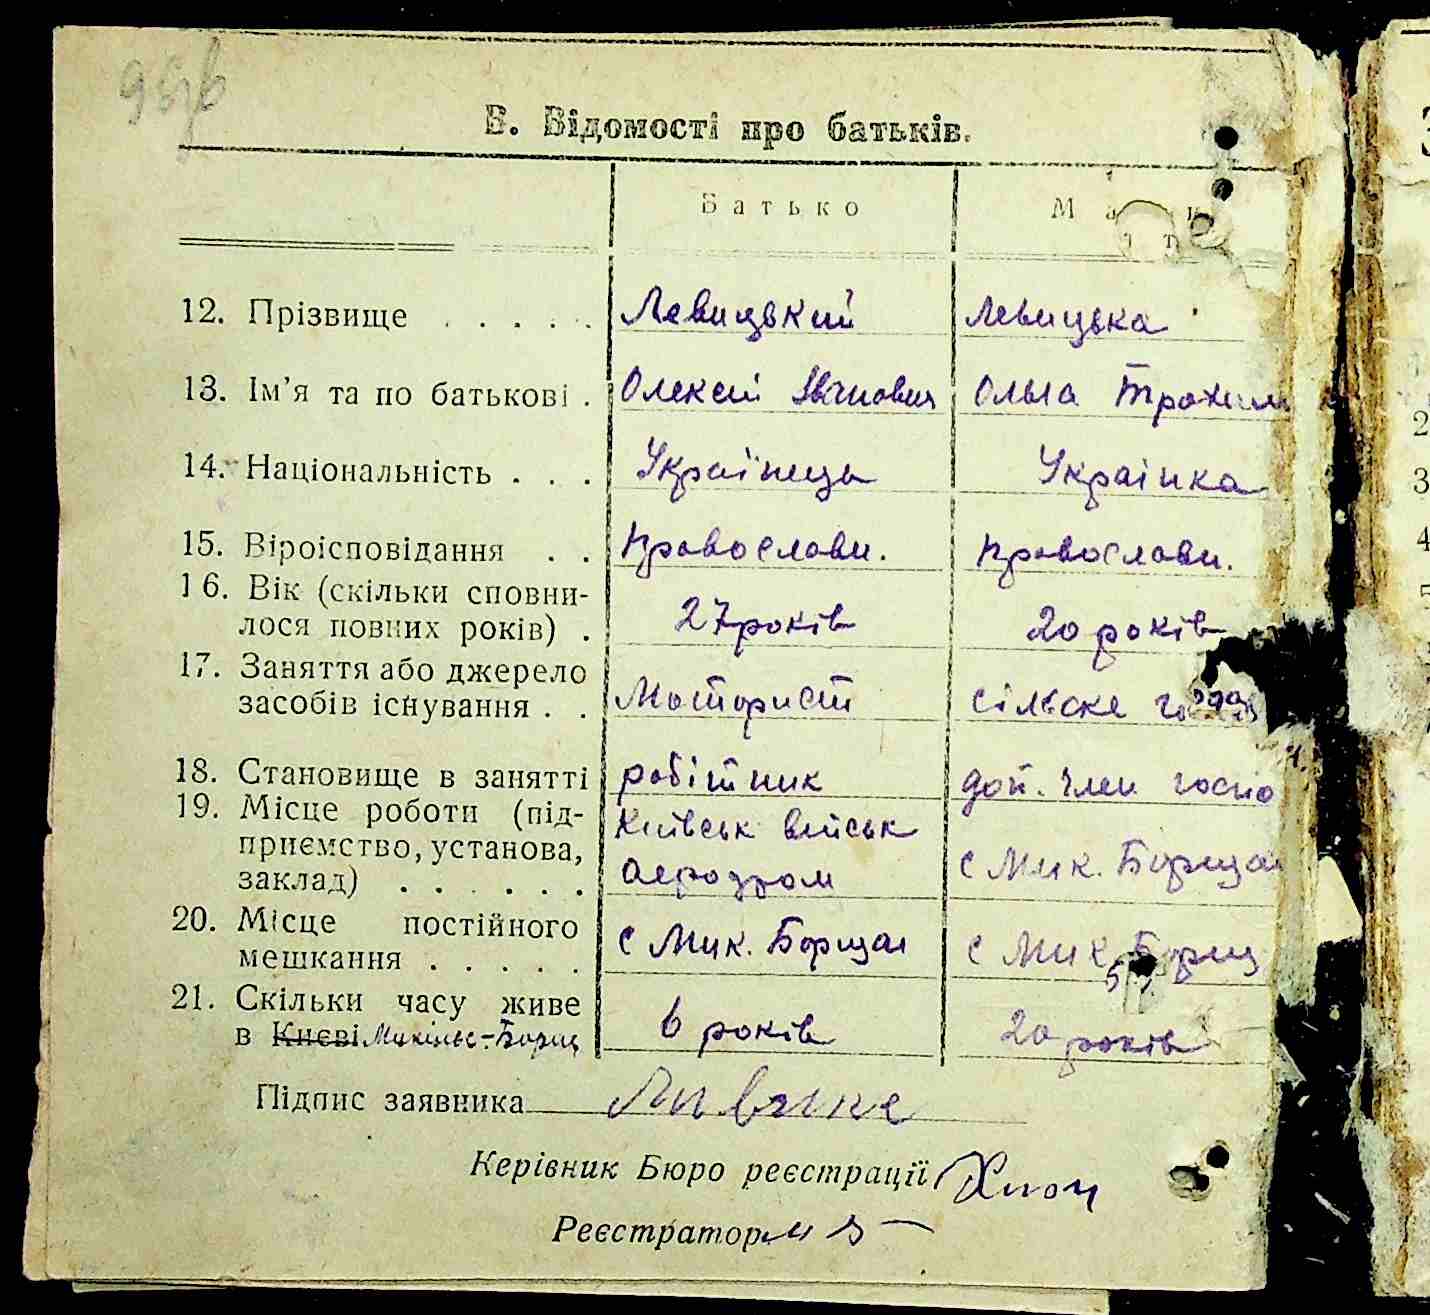 В. Відомості про батьків.
Батько Мати
12. Прізвище . . . . . Левицький Левицька
13. Ім'я та по батькові . Олексій Іванович Ольга Трохим
14. Національність . . . Українець Українка
15. Віроісповідання . . православн. православн.
16. Вік (скільки сповни-
лося повних років) . 27 років 20 років
17. Заняття або джерело
засобів існування . . Моторист сільске
18. Становище в занятті робітник доп. член госпо
19. Місце роботи (під- Київськ військ
приємство, установа, с Мик. Борщаг
заклад) . . . . . . аеродром
20. Місце постійного
мешкання . . . . . с Мик. Борщаг с Мик. Борщ
21. Скільки часу живе
в Києві Микільс.-Борщ 6 років 20 років
Підпис заявника
Керівник Бюро реєстрації
Реєстратор